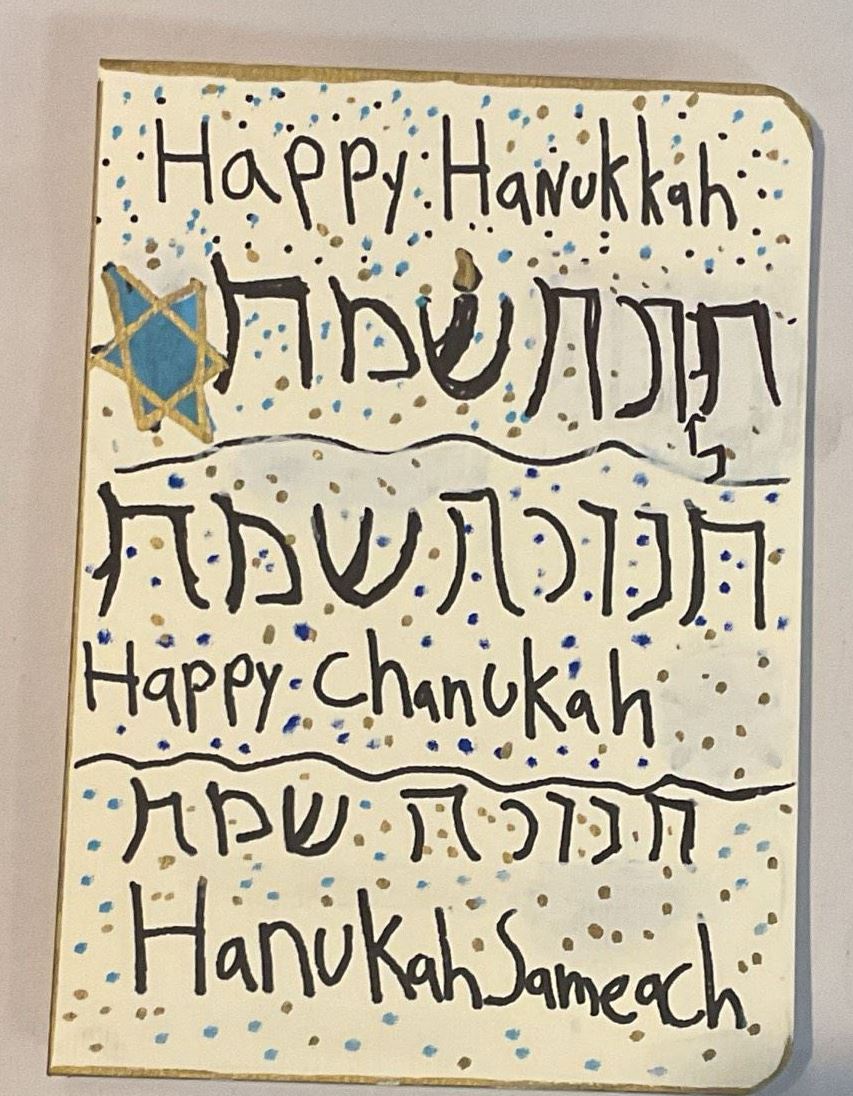 Happy Hanukkah
חנוכה שמח
חנוכה שמח
Happy Chanukah
חנוכה שמח
Hanukah Sameach